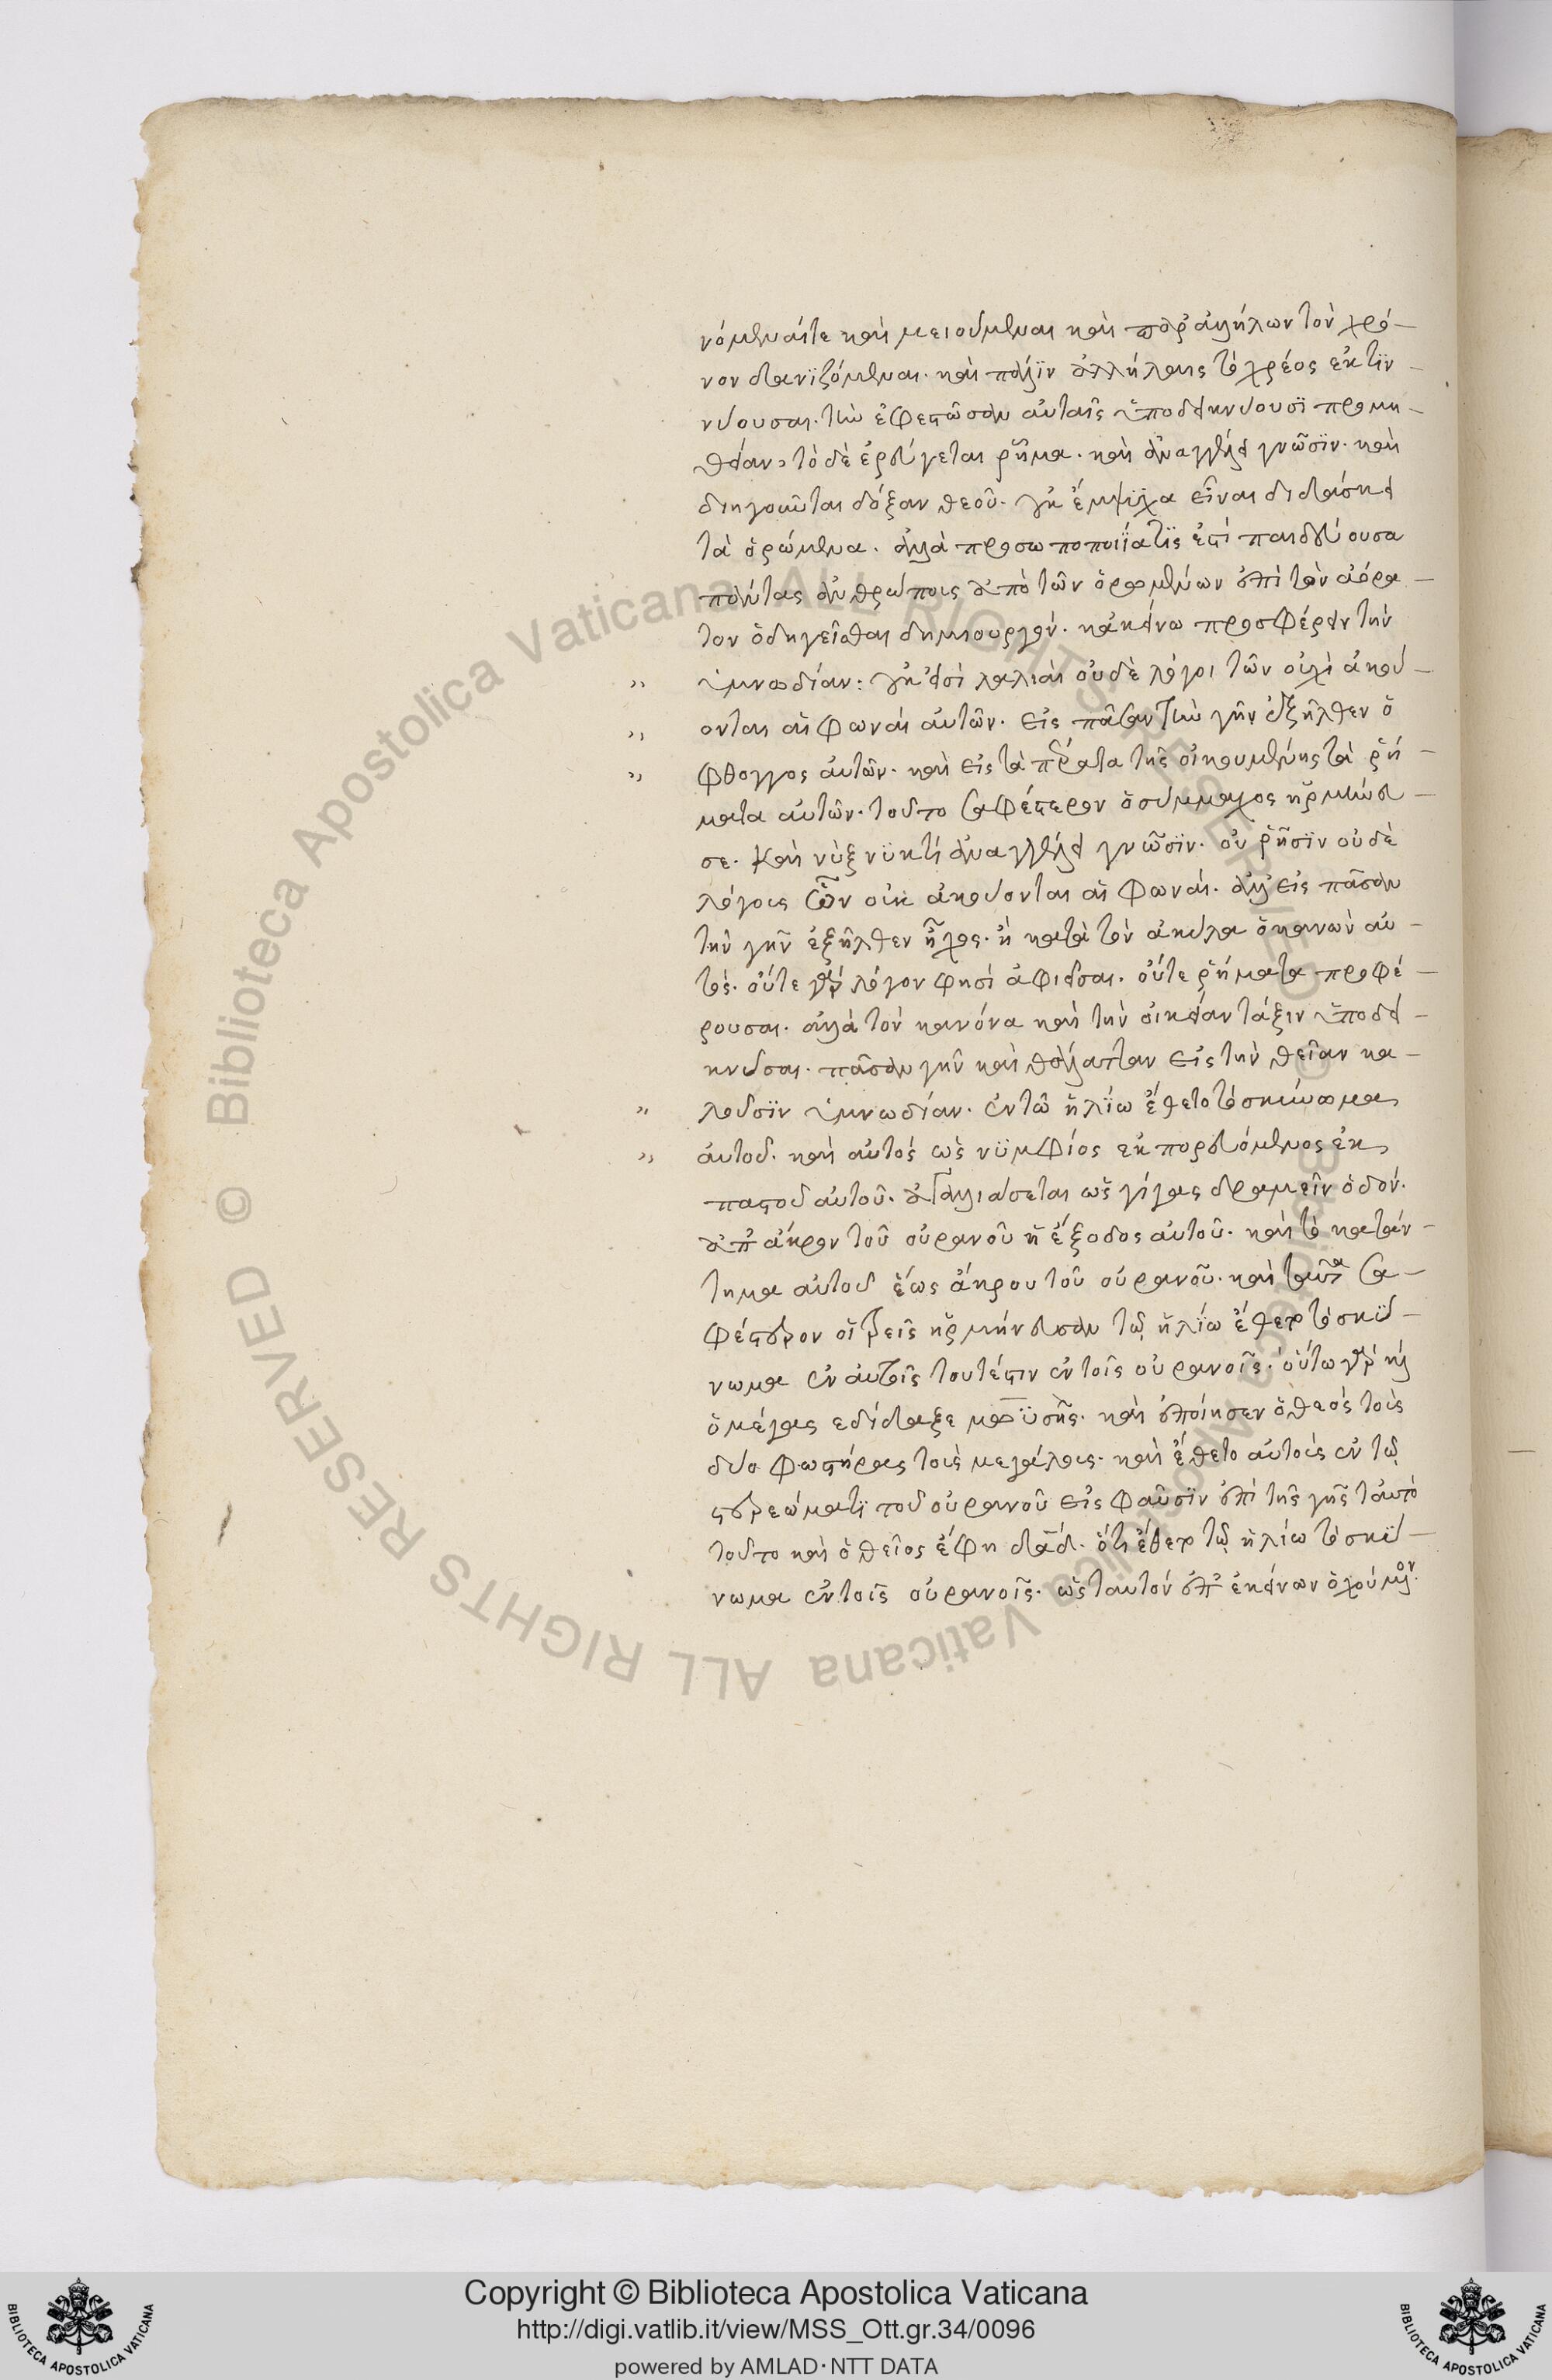 νόμεναί τε καὶ μειούμεναι καὶ παρ' ἀλλήλων τὸν χρό-
νον δανϊζόμεναι. καὶ πάλϊν ἀλλήλαις τὸ χρέος ἐκτϊν-
νύουσαι. τὴν ἐφεστῶσαν αὐταῖς ὑποδεικνύουσϊ προμη-
θείαν, τὸ δὲ ἐρεύγεται ῥῆμα. καὶ ἀναγγέλει γνῶσϊν. καὶ
διηγοῦνται δόξαν θεοῦ. οὐκ ἔμψϋχα εἶναι διδάσκει
τὰ ὁρώμενα. ἀλλὰ προσωποποιΐα τϊς ἐστὶ παιδεύουσα
πάντας ἀνθρώποις ἀπὸ τῶν ὁρωμένων ἐπὶ τὸν ἀόρα-
τον ὁδηγεῖσθαι δημιουργόν. κἀκείνω προσφέρειν τὴν
„ ὑμνωδίαν: οὐκ εἰσὶ λαλιαὶ οὐδὲ λόγοι τῶν οὐχὶ ἀκού-
„ ονται αἱ φωναὶ αὐτῶν. εἰς πᾶσαν τὴν γῆν ἐξῆλθεν ὁ
„ φθογγος αὐτῶν. καὶ εἰς τὰ πέρατα τῆς οἰκουμένης τὰ ῥή-
ματα αὐτῶν. τοῦτο σαφέστερον ὁ σύμμαχος ἡρμήνευ-
σε. καὶ νὺξ νϋκτὶ ἀναγγέλει γνῶσϊν. οὐ ῥῆσϊν οὐδὲ
λόγοις ὧν οὐκ ἀκούονται αἱ φωναί. ἀλλ' εἰς πᾶσαν
τὴν γῆν ἐξῆλθεν ἦχος. ἢ κατὰ τὸν ἀκύλα ὁ κανὼν αὐ-
τὸς. οὔτε γὰρ λόγον φησὶ ἀφιεῖσαι. οὔτε ῥήματα προφέ-
ρουσαι. ἀλλὰ τὸν κανόνα καὶ τὴν οἰκείαν τάξιν ὑποδει-
κνῦσαι. πᾶσαν γῆν καὶ θάλατταν εἰς τὴν θεῖαν κα-
„ λοῦσϊν ὑμνωδίαν. ἐν τῶ ἡλΐω ἔθετο τὸ σκήνωμα
„ αὐτοῦ. καὶ αὐτὸς ὡς νϋμφίος ἐκπορευόμενος ἐκ
παστοῦ αὐτοῦ. ἀγαλλιάσεται ὡς γίγας δραμεῖν ὁδόν.
ἀπ' ἄκρον τοῦ οὐρανοῦ ἡ ἔξοδος αὐτοῦ. καὶ τὸ κατάν-
τημα αὐτοῦ ἕως ἄκρου τοῦ οὐρανοῦ. καὶ ταῦτα σα-
φέστερον οἱ τρεῖς ἡρμήνευσαν τῷ ἡλΐω ἔθετο τὸ σκή-
νωμα ἐν αὐτοῖς τουτέστιν ἐν τοῖς οὐρανοῖς. οὕτω γὰρ καὶ
ὁ μέγας ἐδίδαξε μωϋσῆς. καὶ ἐποίησεν ὁ θεὸς τοὺς
δύο φωστήρας τοὺς μεγάλους. καὶ ἔθετο αὐτοὺς ἐν τῷ
στερεώματϊ τοῦ οὐρανοῦ εἰς φαῦσϊν ἐπὶ τῆς γῆς ταὐτὸ
τοῦτο καὶ ὁ θεῖος ἔφη δαδ. ὅτι ἔθετο τῷ ἡλίω τὸ σκή-
νωμα ἐν τοῖς οὐρανοῖς. ὥς ταυτόν ἐπ' ἐκείνων ὀχούμενον.
Copyright © Biblioteca Apostolica Vaticana
http://digi.vatlib.it/view/MSS_Ott.gr.34/0096
powered by AMLAD·NTT DATA